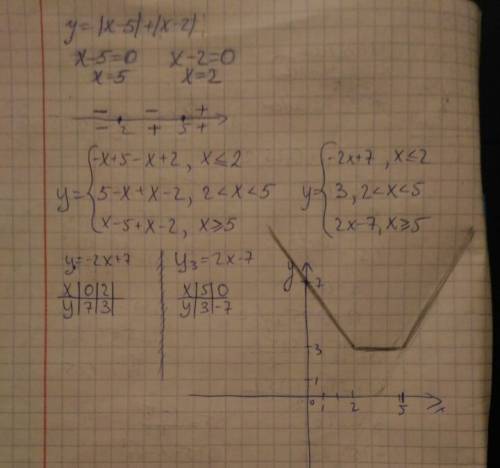 y = |x-5|+|x-2|
x-5=0 x-2=0
x=5 x=2
− − +
− 2 + 5 +
y = { -x+5-x+2, x≤2
5-x+x-2, 2<x<5
x-5+x-2, x≥5
y = { -2x+7, x≤2
3, 2<x<5
2x-7, x≥5
y=-2x+7
x|0|2|
y|7|3|
y₃=2x-7
x|5|0
y|3|-7
y
7
3
1
0 1 2 5 x